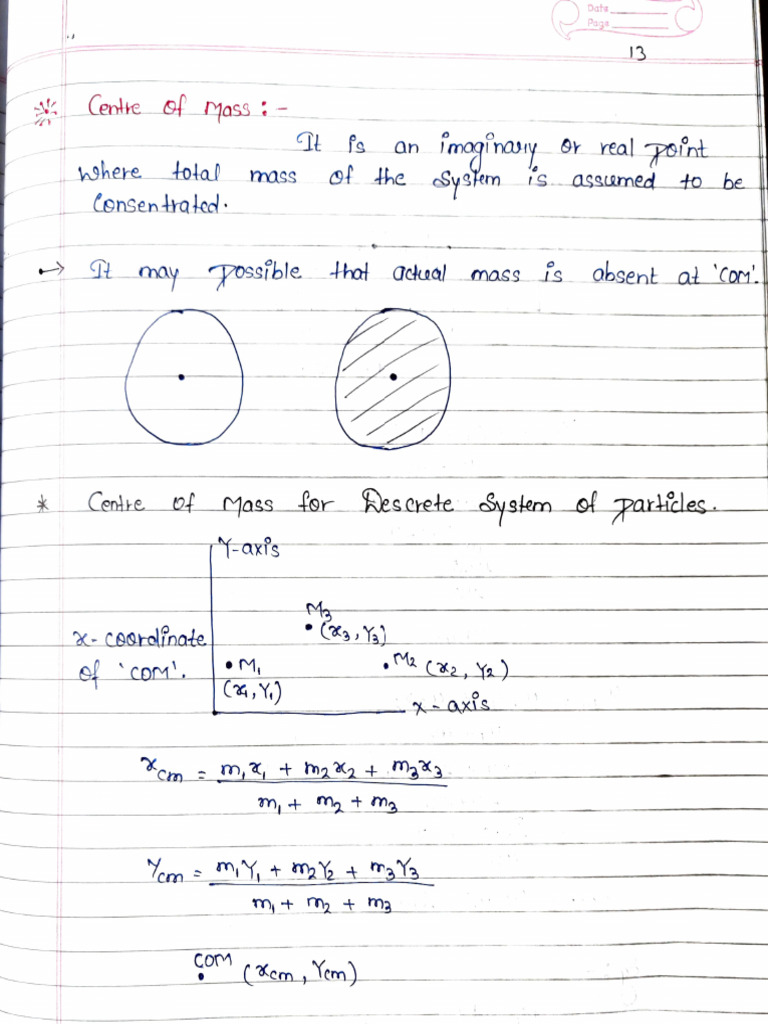 Date
Page
13
Centre of Mass :-
It is an imaginary or real point
where total mass of the system is assumed to be
Consentrated.
→ It may possible that actual mass is absent at 'COM'.
* Centre of Mass for Descrete System of particles.
Y-axis
M₃
(x₃, Y₃)
x-coordinate
of 'COM'.
M₁
(x₁, Y₁)
M₂ (x₂, Y₂)
x-axis
xcm = m₁x₁ + m₂x₂ + m₃x₃
m₁ + m₂ + m₃
Ycm = m₁Y₁ + m₂Y₂ + m₃Y₃
m₁ + m₂ + m₃
COM
(xcm, Ycm)